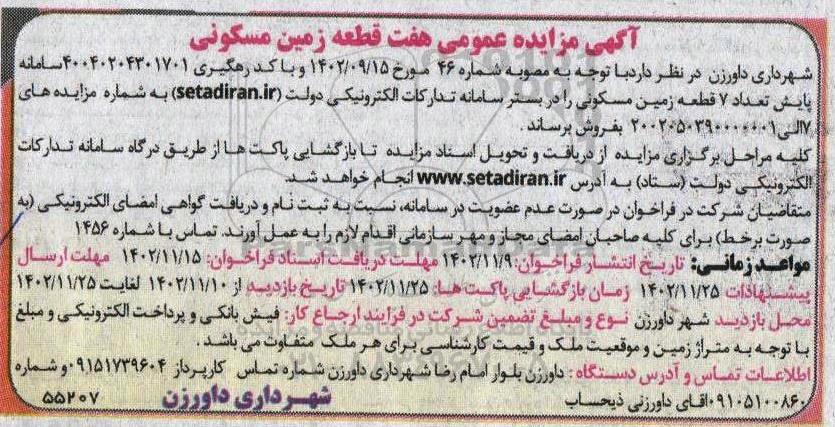 آگهی مزایده عمومی هفت قطعه زمین مسکونی
شهرداری داورزن در نظر دارد با توجه به مصوبه شماره ۴۶ مورخ ۱۴۰۲/۰۹/۱۵ و با کد رهگیری ۴۰۰۴۰۲۰۴۳۰۱۷۰۱ سامانه
پایش تعداد ۷ قطعه زمین مسکونی را در بستر سامانه تدارکات الکترونیکی دولت (setadiran.ir) به شماره مزایده های
۷الی۲۰۰۲۰۵۰۳۹۰۰۰۰۰۰۱ بفروش برساند .
کلیه مراحل برگزاری مزایده از دریافت و تحویل اسناد مزایده تا بازگشایی پاکت ها از طریق درگاه سامانه تدارکات
الکترونیکی دولت (ستاد) به آدرس www.setadiran.ir انجام خواهد شد.
متقاضیان شرکت در فراخوان در صورت عدم عضویت در سامانه، نسبت به ثبت نام و دریافت گواهی امضای الکترونیکی (به
صورت برخط) برای کلیه صاحبان امضای مجاز و مهر سازمانی اقدام لازم را به عمل آورند. تماس با شماره ۱۴۵۶
مواعد زمانی: تاریخ انتشار فراخوان: ۱۴۰۲/۱۱/۹ مهلت دریافت اسناد فراخوان: ۱۴۰۲/۱۱/۱۵ مهلت ارسال
پیشنهادات ۱۴۰۲/۱۱/۲۵ زمان بازگشایی پاکت ها: ۱۴۰۲/۱۱/۲۵ تاریخ بازدید از ۱۴۰۲/۱۱/۱۰ لغایت ۱۴۰۲/۱۱/۲۵
محل بازدید شهر داورزن نوع و مبلغ تضمین شرکت در فرایند ارجاع کار: فیش بانکی و پرداخت الکترونیکی و مبلغ
با توجه به متراژ زمین و موقعیت ملک و قیمت کارشناسی برای هر ملک متفاوت می باشد .
اطلاعات تماس و آدرس دستگاه : داورزن بلوار امام رضا شهرداری داورزن شماره تماس کارپرداز ۰۹۱۵۱۷۳۹۶۰۴ و شماره
۰۹۱۰۵۱۰۰۸۶۰ اقای داورزنی ذیحساب
شهرداری داورزن
۵۵۲۰۷